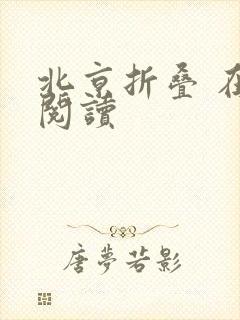 北京折叠 在
閱讀
唐夢若影